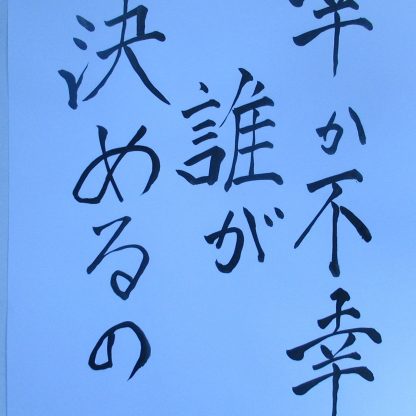 幸か不幸
誰が
決めるの